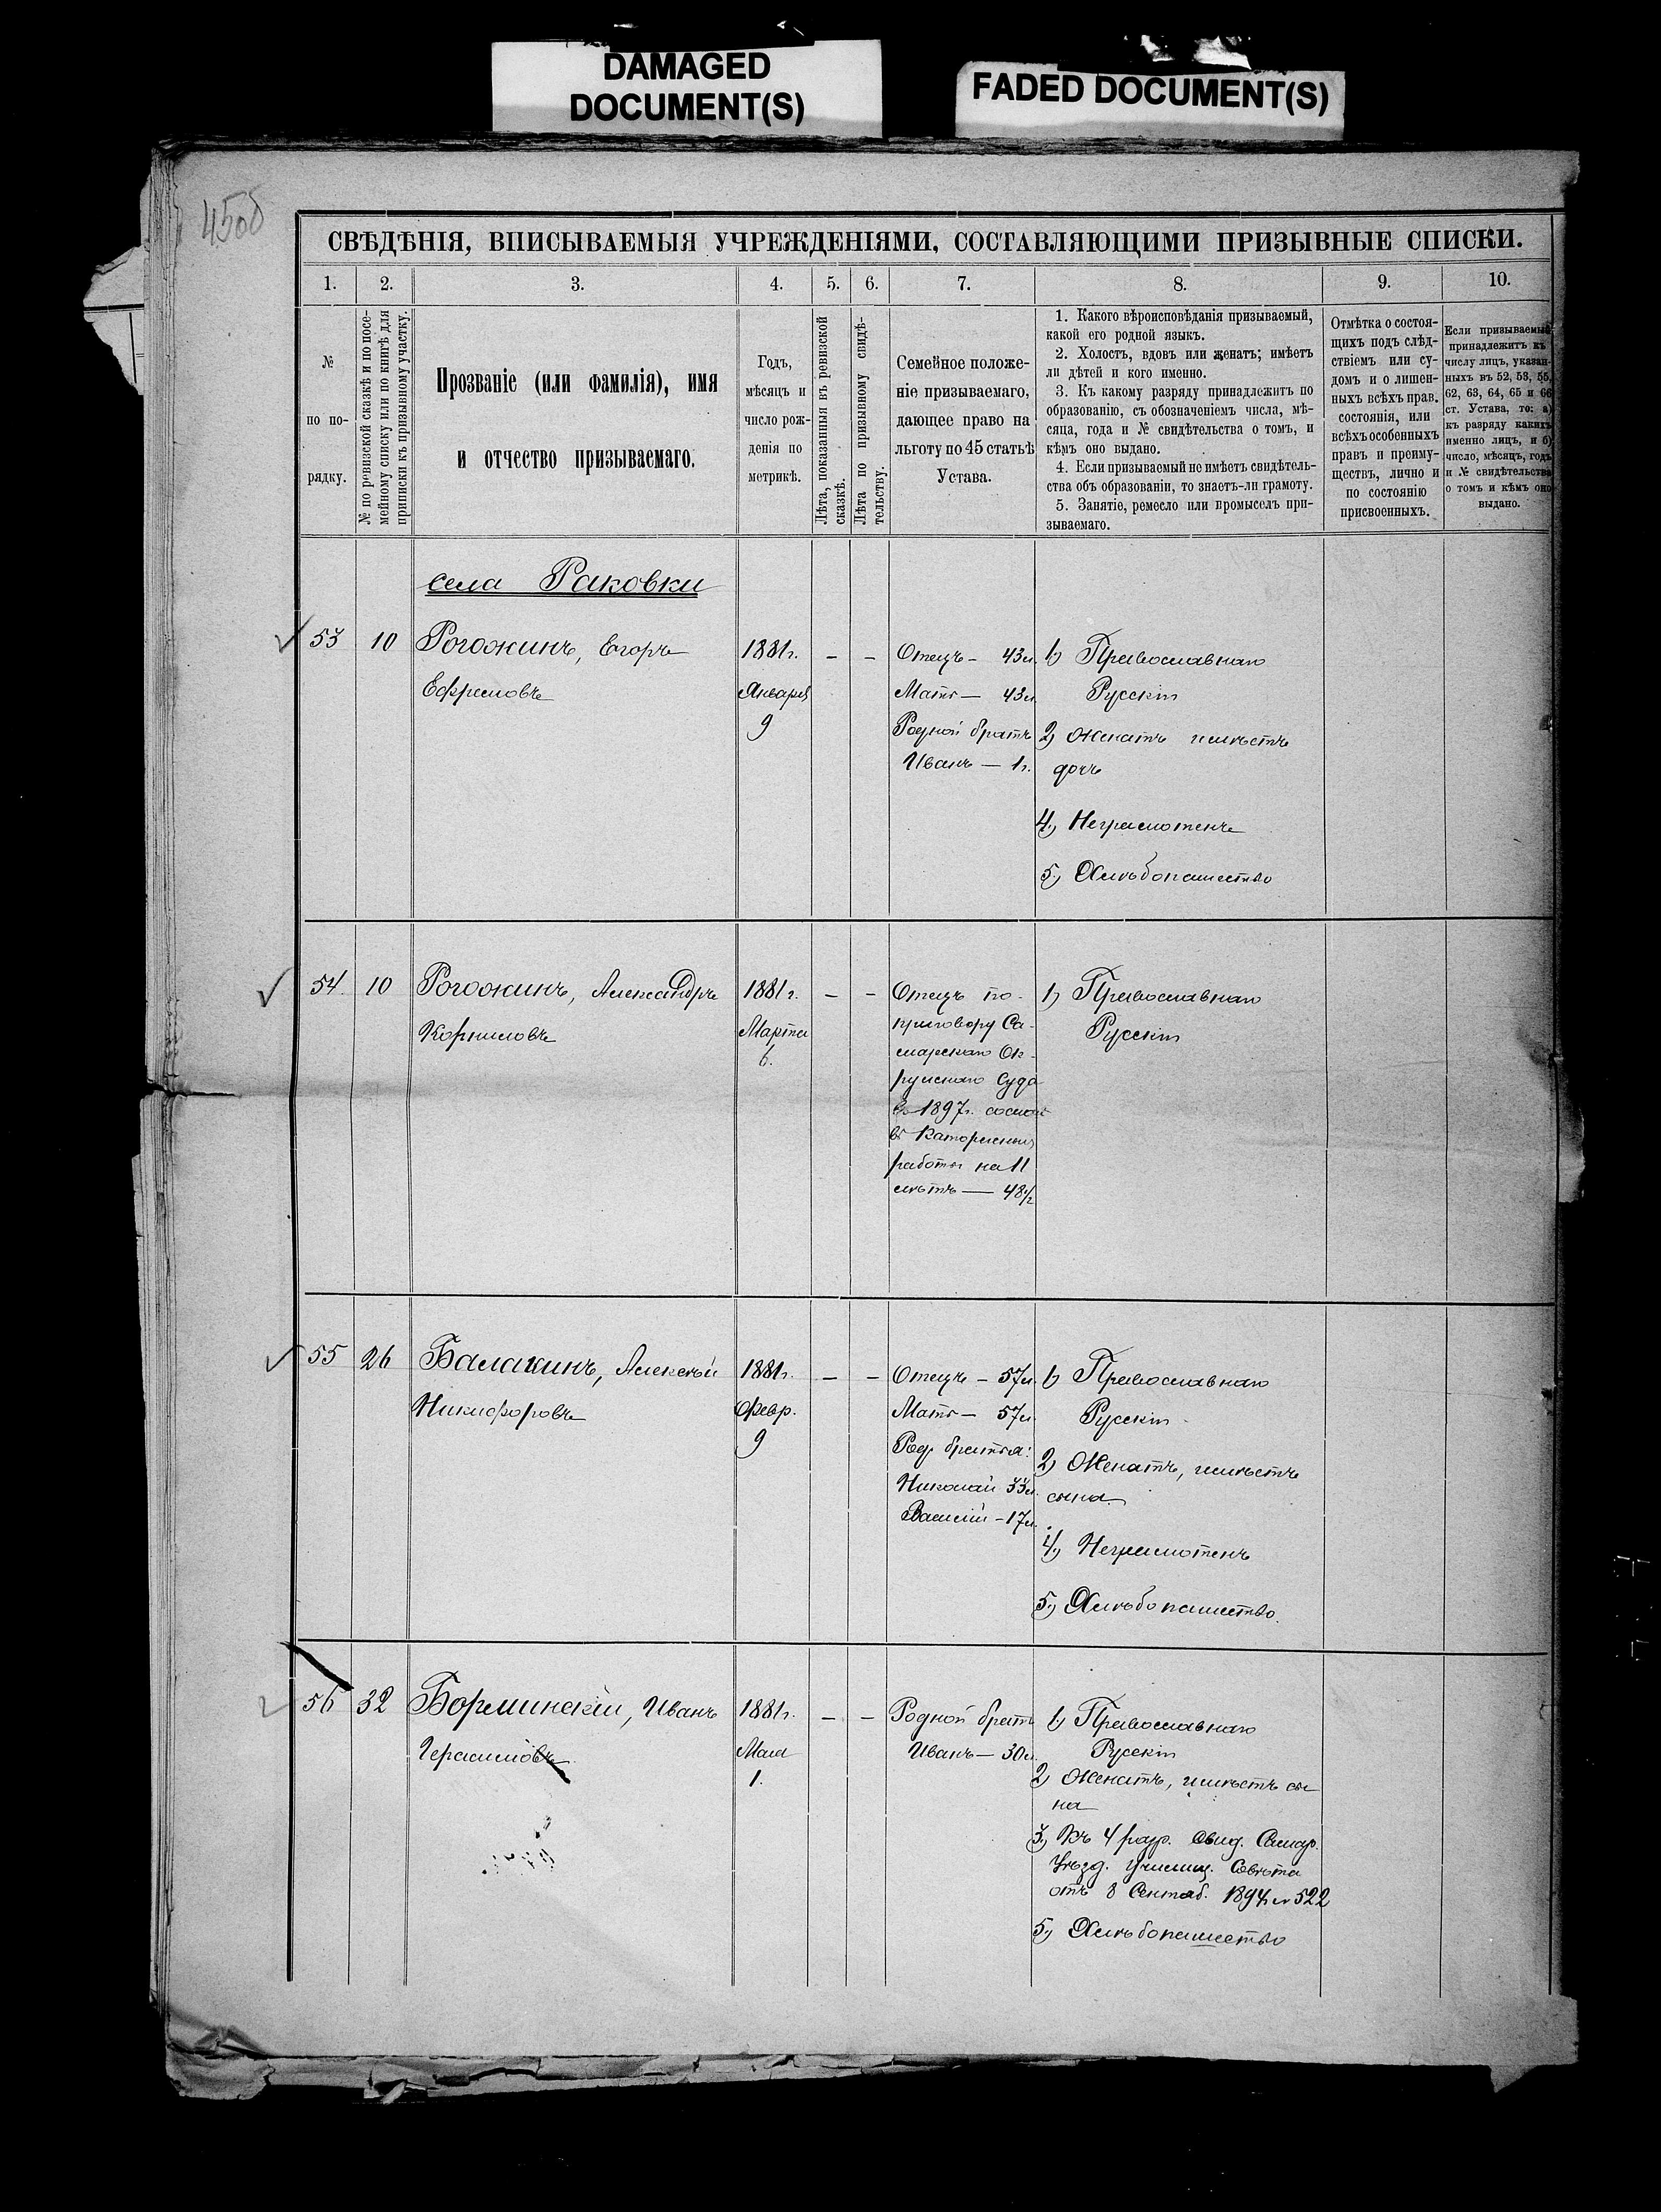 DAMAGED
DOCUMENT(S)
FADED DOCUMENT(S)
45об
СВѢДѢНІЯ, ВПИСЫВАЕМЫЯ УЧРЕЖДЕНІЯМИ, СОСТАВЛЯЮЩИМИ ПРИЗЫВНЫЕ СПИСКИ.
1. 2. 3. 4. 5. 6. 7. 8. 9. 10.
№
по по-
рядку.
№ по ревизской сказкѣ и по посе-
мейному списку или по книгѣ для
приписки къ призывному участку.
Прозваніе (или фамилія), имя
и отчество призываемаго.
Годъ,
мѣсяцъ и
число рож-
денія по
метрикѣ.
Лѣта, показанныя въ ревизской
сказкѣ.
Лѣта по призывному свидѣ-
тельству.
Семейное положе-
ніе призываемаго,
дающее право на
льготу по 45 статьѣ
Устава.
1. Какого вѣроисповѣданія призываемый,
какой его родной языкъ.
2. Холостъ, вдовъ или женатъ; имѣетъ
ли дѣтей и кого именно.
3. Къ какому разряду принадлежитъ по
образованію, съ обозначеніемъ числа, мѣ-
сяца, года и № свидѣтельства о томъ, и
кѣмъ оно выдано.
4. Если призываемый не имѣетъ свидѣтель-
ства объ образованіи, то знаетъ-ли грамоту.
5. Занятіе, ремесло или промыселъ при-
зываемаго.
Отмѣтка о состоя-
щихъ подъ слѣд-
ствіемъ или су-
домъ и о лишен-
ныхъ всѣхъ прав.
состоянія, или
всѣхъ особенныхъ
правъ и преиму-
ществъ, лично и
по состоянію
присвоенныхъ.
Если призываемый
принадлежитъ къ
числу лицъ, указан-
ныхъ въ 52, 53, 55,
62, 63, 64, 65 и 66
ст. Устава, то: а)
къ разряду какихъ
именно лицъ, и б)
число, мѣсяцъ, годъ
и № свидѣтельства
о томъ и кѣмъ оно
выдано.
села Раковки
53
10
Рогожинъ, Егоръ
Ефремовъ
1881г.
Января
9
–
–
Отецъ – 43л.
Мать – 43л.
Родной братъ
Иванъ – 1г.
1) Православнаго
Русскій
2) Женатъ имѣетъ
дочь
4) Неграмотенъ
5) Хлѣбопашество
54.
10
Рогожинъ, Александръ
Корниловъ
1881г.
Марта
6.
–
–
Отецъ по
приговору Са-
марскаго Ок-
ружнаго Суда
въ 1897г. сослан
въ Каторжныя
работы на 11
лѣтъ – 48 1/2
1) Православнаго
Русскій
55
26
Балакинъ, Алексѣй
Никифоровъ
1881г.
Февр.
9
–
–
Отецъ – 57л.
Мать – 57л.
Род. братья:
Николай 33л.
Василій – 17л.
1) Православнаго
Русскій
2) Женатъ, имѣетъ
сына
4) Неграмотенъ
5) Хлѣбопашество.
56
32
Борминскій, Иванъ
Герасимовъ
1881г.
Мая
1.
–
–
Родной братъ
Иванъ – 30л.
1) Православнаго
Русскій
2) Женатъ, имѣетъ сы
на
3) Къ 4 разр. Свид. Самар.
Уѣзд. Училищ. Совѣта
отъ 8 Сентяб. 1894г. № 522
5) Хлѣбопашество